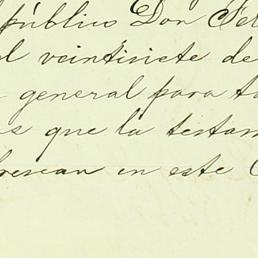 público Don Fel
l veintisiete de
general para t
s que la testam
resean en este C